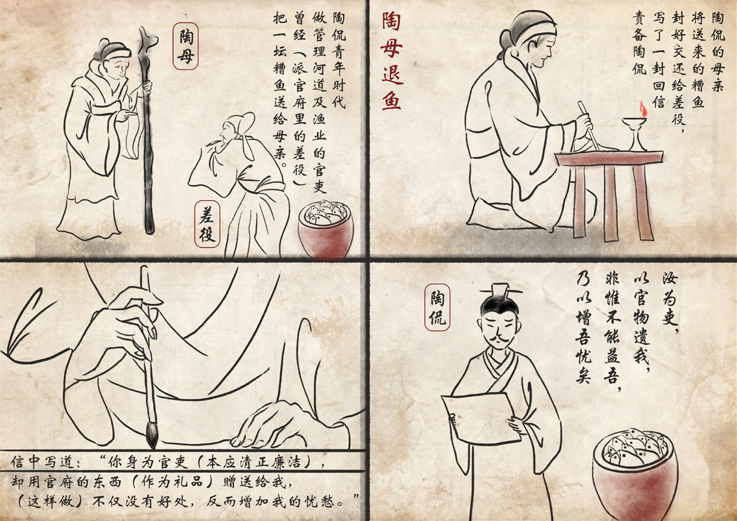 陶侃青年时代
做管理河道及渔业的官吏
曾经（派官府里的差役）
把一坛糟鱼送给母亲。
陶母
差役
陶侃的母亲
将送来的糟鱼
封好交还给差役，
写了一封回信
责备陶侃
陶母退鱼
信中写道：“你身为官吏（本应清正廉洁），
却用官府的东西（作为礼品）赠送给我，
（这样做）不仅没有好处，反而增加我的忧愁。”
汝为吏，
以官物遗我，
非惟不能益吾，
乃以增吾忧矣
陶侃